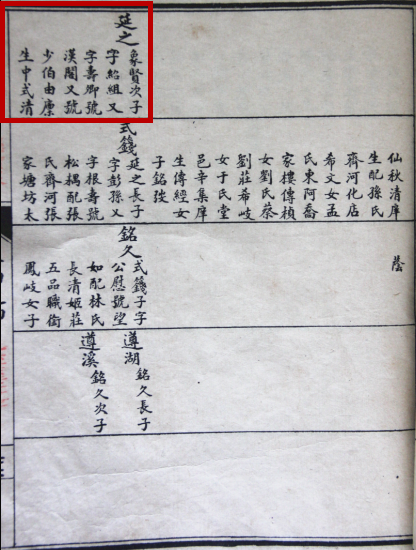 延之
象賢次子
字紹組又
字壽卿號
漢閣又號
少伯由廩
生中式清
仙秋清庠
生配孫氏
齊河化店
希文女孟
氏東阿喬
家樓傳禎
女劉氏蔡
劉莊希岐
女于氏堂
邑辛集庠
生傳經女
子銘琰
式籛
延之長子
字彭孫又
字根壽號
松耦配張
氏齊河張
家塘坊太
蔭
銘久
式籛子字
公慰號望
如配林氏
長清姬莊
五品職銜
鳳岐女子
遵湖
銘久長子
遵溪
銘久次子